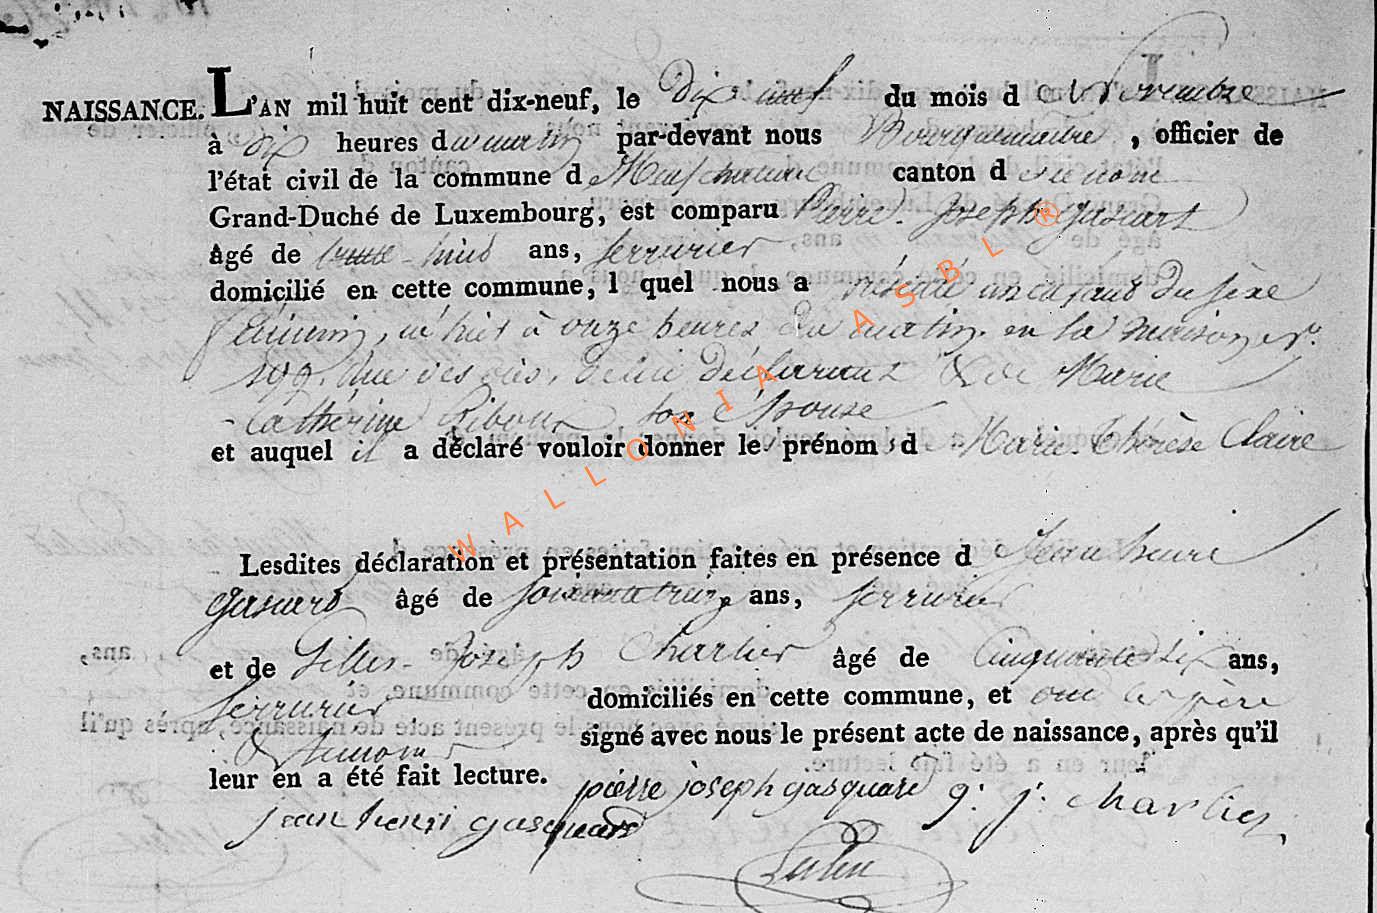 NAISSANCE. L'AN mil huit cent dix-neuf, le Dix neuf du mois de Novembre
à dix heures du matin par-devant nous Bourguemaitre, officier de
l'état civil de la commune de Neufchateau canton du même
Grand-Duché de Luxembourg, est comparu Pierre-Joseph Gascart
âgé de trente-huit ans, serrurier
domicilié en cette commune, lequel nous a présenté un enfant du sexe
féminin, né hier à onze heures du matin en la maison nº.
199, de lui déclarant & de Marie
Catherine Riboux son épouse
et auquel il a déclaré vouloir donner les prénoms de Marie-Thérèse Claire
Lesdites déclaration et présentation faites en présence de Jean henri
Gascard âgé de soixante treize ans, serrurier
et de Gilles-Joseph Charlier âgé de Cinquante six ans,
serrurier domiciliés en cette commune, et ont le père
& témoins signé avec nous le présent acte de naissance, après qu'il
leur en a été fait lecture. pierre joseph gasquard g: j: charlier
jean henri gasquard
WALLONIA ASBL ®